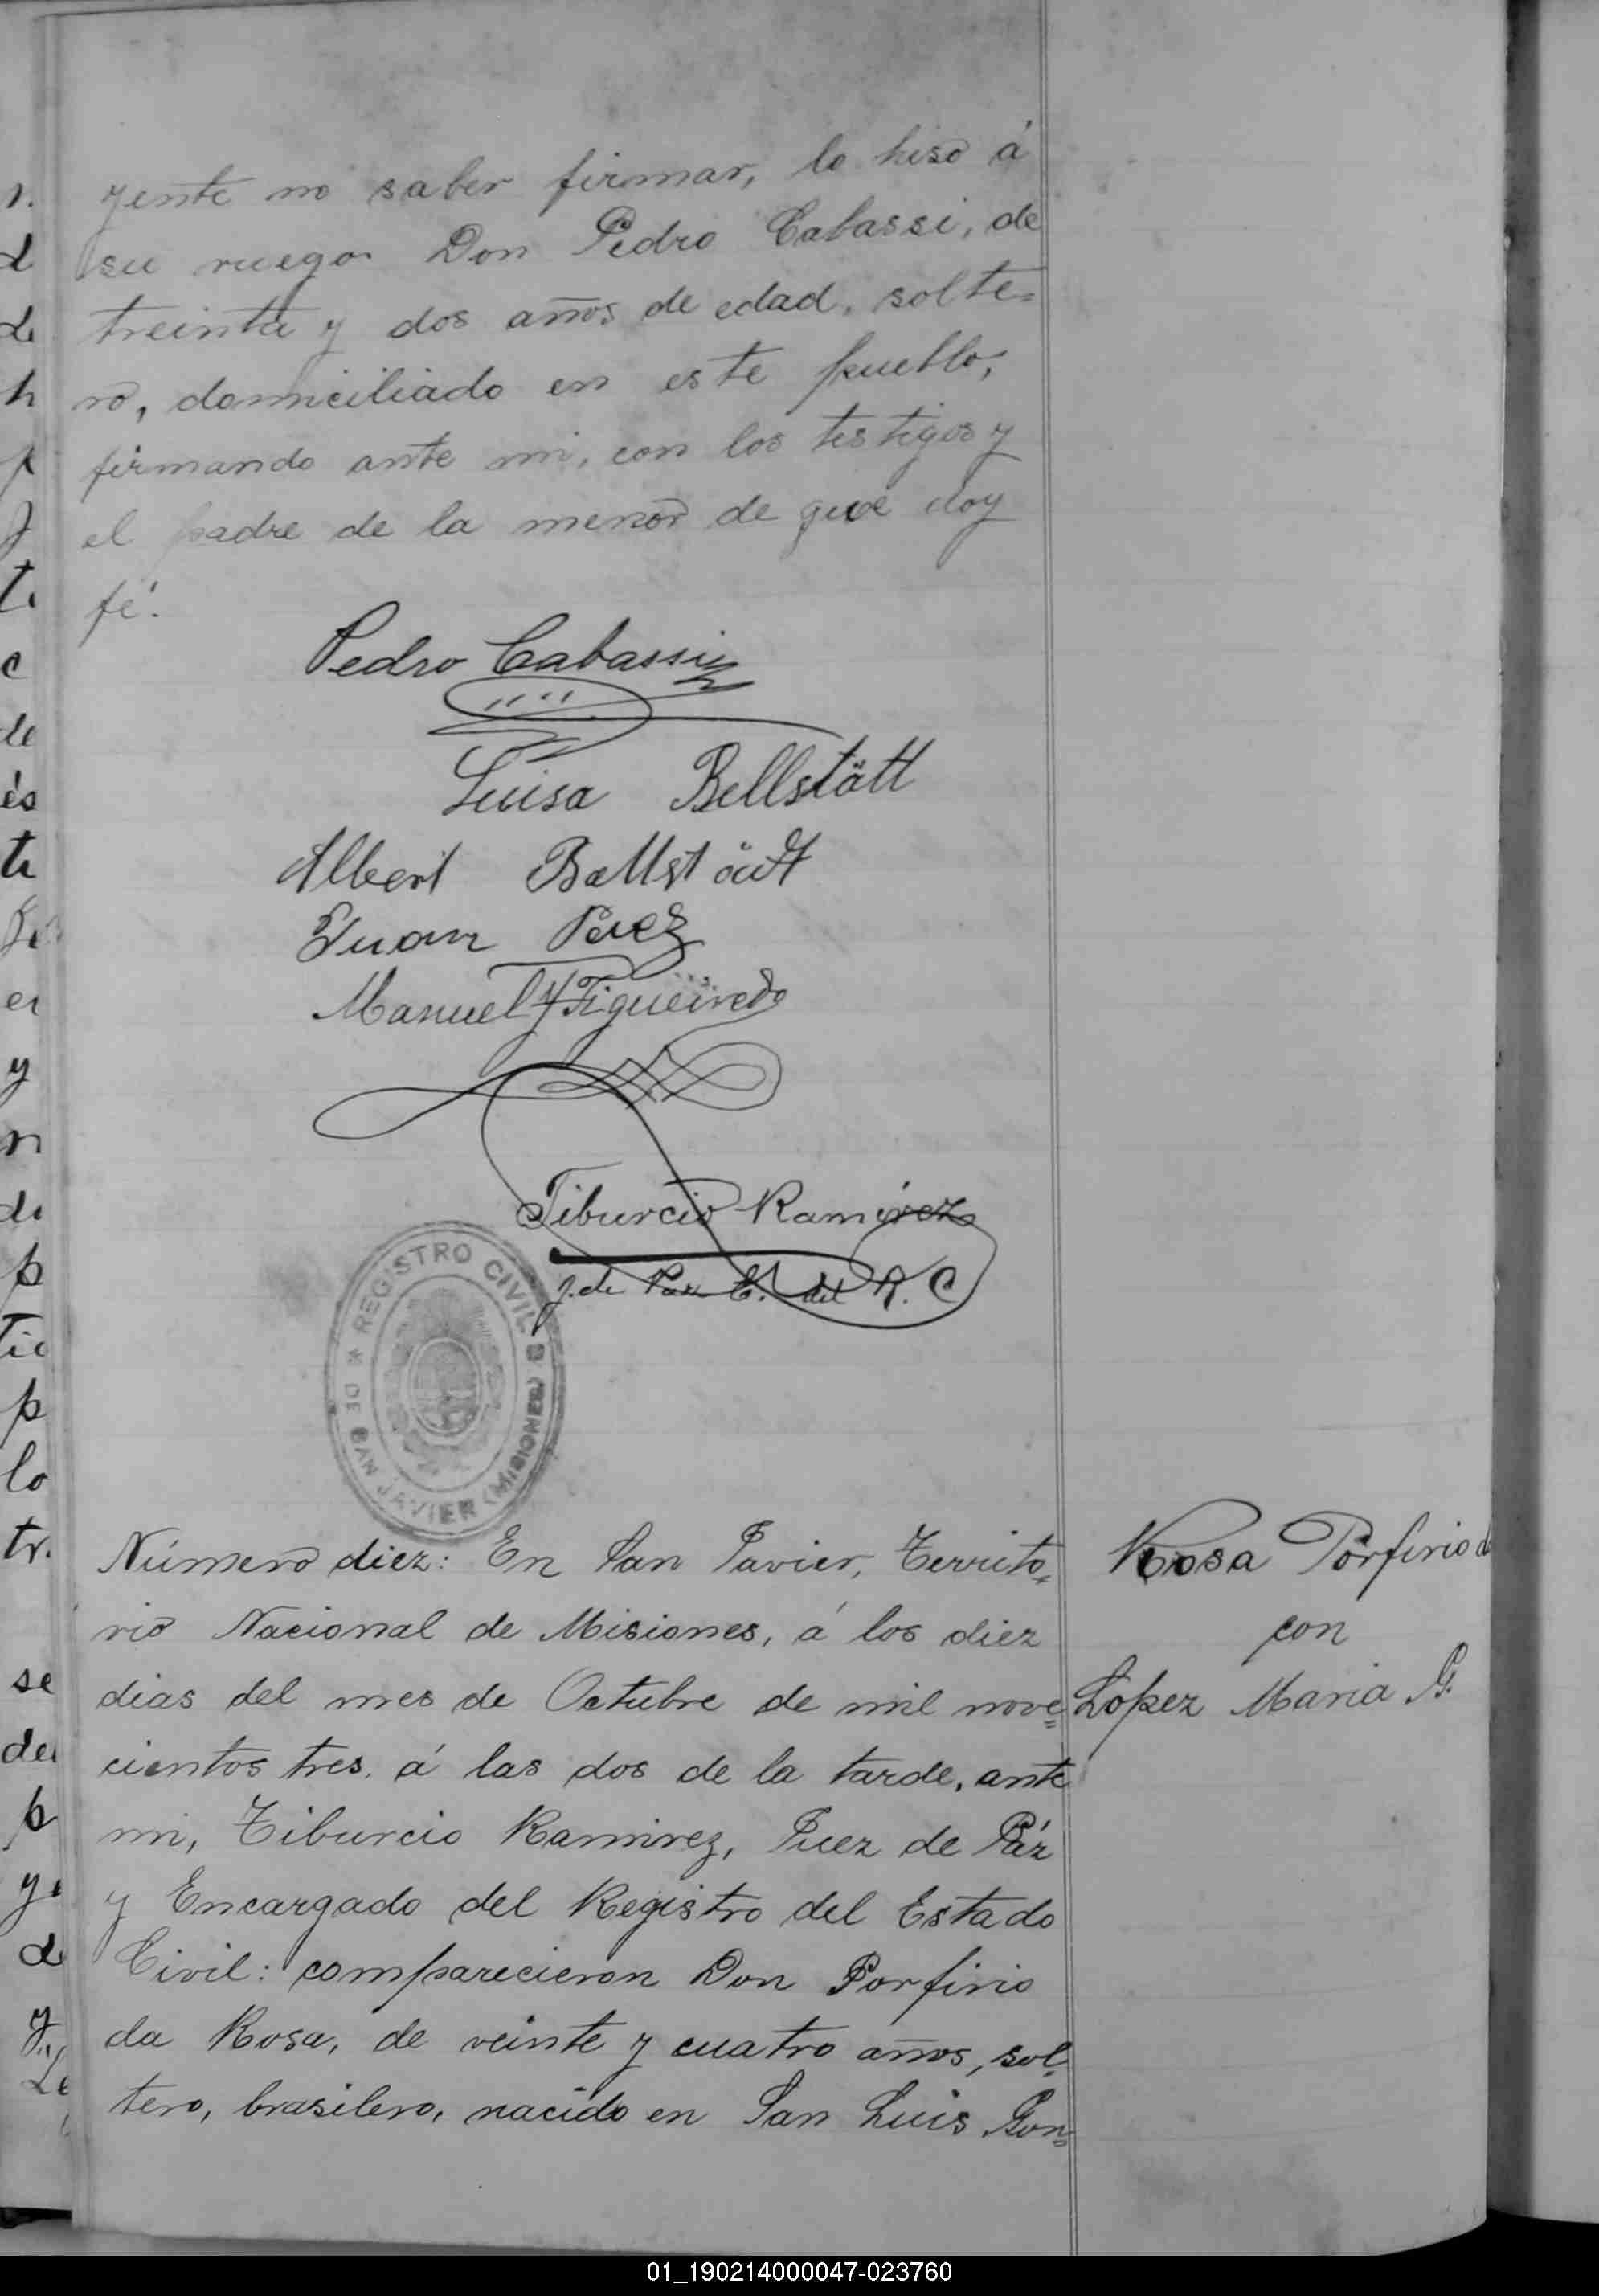 yente no saber firmar, lo hiso á
su ruego Don Pedro Cabassi, de
treinta y dos años de edad, solte=
ro, domiciliado en este pueblo;
firmando ante mi, con los testigos y
el padre de la menor de que doy
fé.
Pedro Cabassi
Luisa Bellstätt
Albert Bellstädt
Juan Paez
Manuel Y Figueiredo
Tiburcio Ramirez
J. de Paz E. del R. C
REGISTRO CIVIL
DE SAN JAVIER (MISIONES)
Número diez: En San Javier, Territo=
rio Nacional de Misiones, á los diez
dias del mes de Octubre de mil nove=
cientos tres, á las dos de la tarde, ante
mi, Tiburcio Ramirez, Juez de Páz
y Encargado del Registro del Estado
Civil: comparecieron Don Porfirio
da Rosa, de veinte y cuatro años, sol=
tero, brasilero, nacido en San Luis Gon=
Rosa Porfirio d
con
López Maria G.
01_190214000047-023760